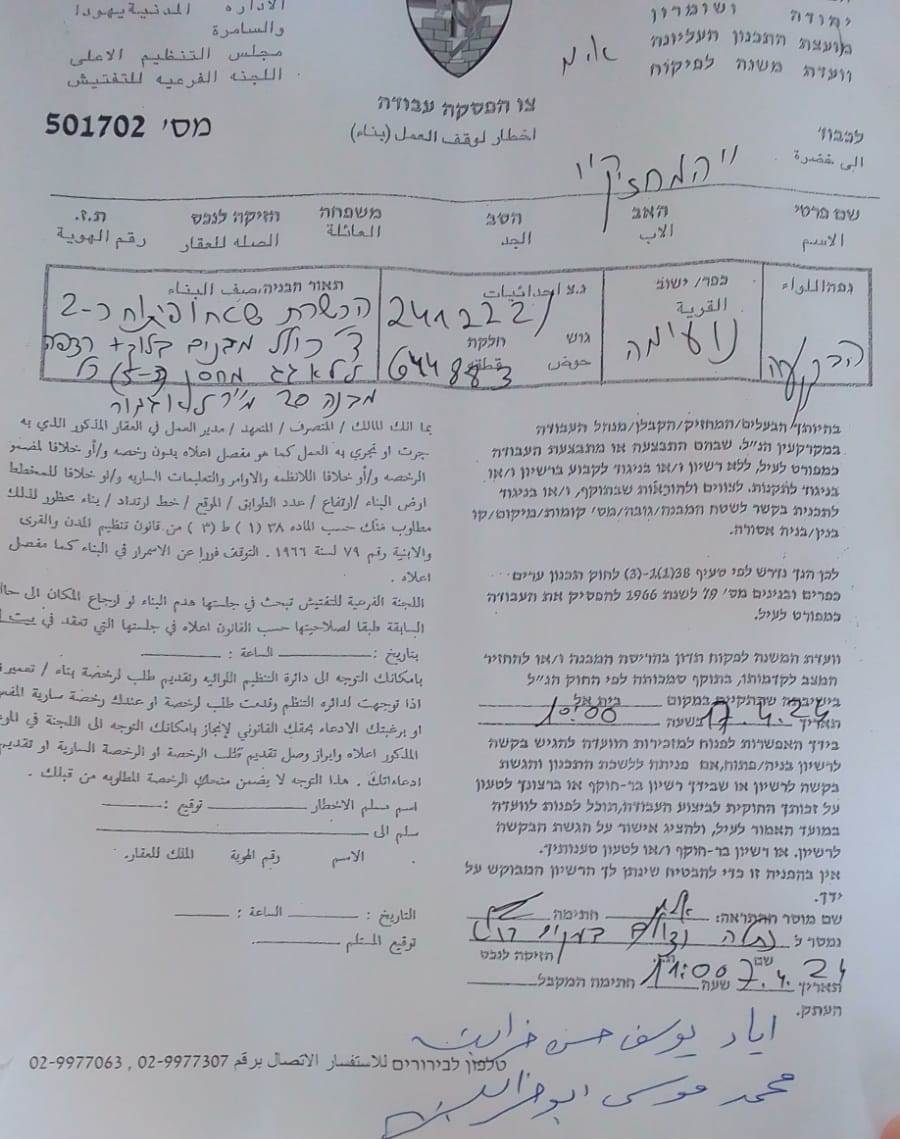 الاداره المدنية يهودا
والسامرة
مجلس التنظيم الاعلى
اللجنه الفرعيه للتفتيش
יהודה ושומרון
מועצת התכנון העליונה
וועדת משנה לפיקוח
א.מ
צו הפסקה עבודה
اخطار لوقف العمل (بناء)
מס' 501702
לכבוד
الى حضرة
"המחזיק"
שם פרטי האב הסב משפחה חזיקה לנכס ת.ז.
الاسم الاب الجد العائلة الصله للعقار رقم الهوية
נפה/اللواء
הבקעה
כפר/ ישוב
القرية
נועימה
נ.צ احداثيات
241222/
גוש חלקה
حوض قطعة
644883
תאור הבניה/صف البناء
הכשרת שטח ופיתוח כ-2
ד' כולל מבנים בלוק + רצפה
ללא גג מחסן (5-3) כל
מבנה 20 מ"ר לא
בהיותך הבעלים/המחזיק/הקבלן/מנהל העבודה
במקרקעין הנ"ל. שבהם התבצעה או מתבצעת העבודה
כמפורט לעיל, ללא רשיון ו/או בניגוד לקבוע ברשיון ו/או
בניגוד לתקנות. לצווים ולהוראות שבתוקף, ו/או בניגוד
לתכנית בקשר לשטח המבנה/גובה/מס' קומות/מיקום/קו
בנין/בניה אסורה.
לכן הנך נדרש לפי סעיף 38(1)ג-(3) לחוק תכנון ערים
כפרים ובנינים מס' 79 לשנת 1966 להפסיק את העבודה
כמפורט לעיל.
וועדת המשנה לפקוח תדון בהריסת המבנה ו/או להחזיר
המצב לקדמותו, בתוקף סמכותה לפי החוק הנ"ל
בישיבתה שתתקיים במקום בית אל
תאריך 17.4.24 בשעה 10:00
בידך האפשרות לפנות למזכירות הוועדה להגיש בקשה
לרשיון בניה/פתוח, אם פניתה ללשכת התכנון והגשת
בקשה לרשיון או שבידך רשיון בר-תוקף או ברצונך לטעון
על זכותך החוקית לביצוע העבודה, תוכל לפנות לוועדה
במועד האמור לעיל, ולהציג אישור על הגשת הבקשה
לרשיון. או רשיון בר-תוקף ו/או לטעון טענותיך.
אין בהפניה זו כדי להבטיח שינתן לך הרשיון המבוקש על
ידך.
שם מוסר ההתראה: חתימה
נמסר ל
שם חזיקה לנכס
תאריך 7.4.24 שעה 11:00 חתימה המקבל
העתק.
بما انك المالك / المتصرف / المتعهد / مدير العمل في العقار المذكور الذي به
جرت او تجري به العمل كما هو مفصل اعلاه بدون رخصه و/أو خلافا لمضمو
الرخصه و/أو خلافا للانظمه والاوامر والتعليمات الساريه و/او خلافا للمخطط
ارض البناء /ارتفاع / عدد الطوابق / الموقع / خط ارتداد / بناء محظور لذلك
مطلوب منك حسب الماده ٣٨ (١) ط (٣) من قانون تنظيم المدن والقرى
والابنية رقم ٧٩ لسنة ١٩٦٦ . التوقف فورا عن الاسمرار في البناء كما مفصل
اعلاه .
اللجنة الفرعية للتفتيش تبحث في جلستها هدم البناء او ارجاع المكان الى حالـ
السابقة طبقا لصلاحيتها حسب القانون اعلاه في جلستها التي تعقد في بيت
بتاريخ : الساعة :
بامكانك التوجه الى دائرة التنظيم اللوائيه وتقديم طلب لرخصة بناء / تعميرة
اذا توجهت لدائره التنظم وقدمت طلب لرخصة او عندك رخصة سارية المفـ
او برغبتك الادعاء بحقك القانوني لإنجاز بامكانك التوجه الى اللجنة في المو
المذكور اعلاه وابراز وصل تقديم طلب الرخصة او الرخصة السارية او تقديم
ادعاءاتك . هذا التوجه لا يضمن منحك الرخصة المطلوبه من قبلك .
اسم مسلم الاخطار توقيع :
سلم الى
الاسم رقم الهوية الملك للعقار.
التاريخ : الساعة :
توقيع المستلم
اياد يوسف حسن
טלפון לבירורים للاستفسار الاتصال برقم 02-9977307 , 02-9977063
محمد موسى ابو